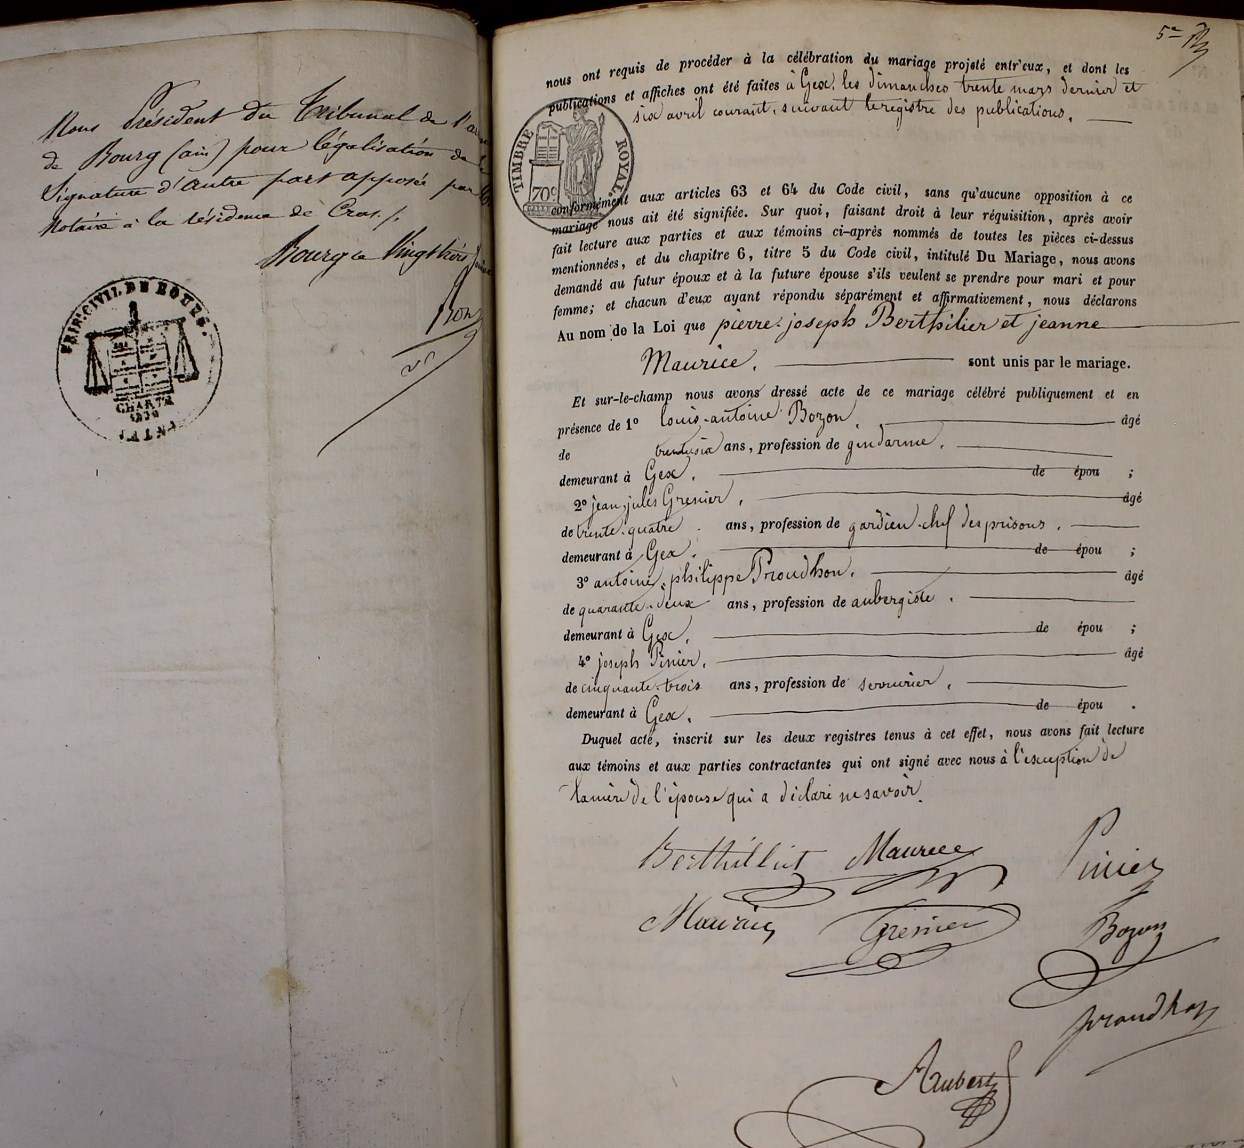 Nous Président du Tribunal de
de Bourg (ain) pour légalisation de
Signature d'autre part apposée par
Notaire à la résidence de Cras ./.
Bourg le Vingt trois
CHARTE
1830
5e
nous ont requis de procéder à la célébration du mariage projeté entr'eux, et dont les
publications et affiches ont été faites à Gex, les dimanches trente mars dernier et
six avril courant, suivant le registre des publications.
TIMBRE ROYAL.
70c
conformément aux articles 63 et 64 du Code civil, sans qu'aucune opposition à ce
mariage nous ait été signifiée. Sur quoi, faisant droit à leur réquisition, après avoir
fait lecture aux parties et aux témoins ci-après nommés de toutes les pièces ci-dessus
mentionnées, et du chapitre 6, titre 5 du Code civil, intitulé Du Mariage, nous avons
demandé au futur époux et à la future épouse s'ils veulent se prendre pour mari et pour
femme; et chacun d'eux ayant répondu séparément et affirmativement, nous déclarons
Au nom de la Loi que pierre-joseph Berthilier et jeanne
Maurice. sont unis par le mariage.
Et sur-le-champ nous avons dressé acte de ce mariage célébré publiquement et en
présence de 1° louis-antoine Bozon, âgé
de trentesix ans, profession de gendarme,
demeurant à Gex, de épou ;
2° jean-jules Grenier, âgé
de trente-quatre ans, profession de gardien-chef des prisons,
demeurant à Gex, de épou ;
3° antoine-philippe Proudhon, âgé
de quarante-deux ans, profession de aubergiste,
demeurant à Gex, de épou ;
4° joseph Pinier, âgé
de cinquante-trois ans, profession de serrurier,
demeurant à Gex, de épou .
Duquel acte, inscrit sur les deux registres tenus à cet effet, nous avons fait lecture
aux témoins et aux parties contractantes qui ont signé avec nous à l'exception de
la mère de l'épouse qui a déclaré ne savoir.
Berthilliet Maurice Pinier
Grenier Bozon
proudhon
Aubert